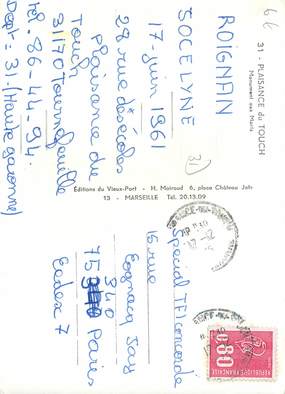 66
31 - PLAISANCE du TOUCH
Monument aux Morts
ROIGNAN
JOCELYNE
17 juin 1961
28 rue des écoles
Plaisance du
Touch
31170 Tournefeuille
tel. 86-44-94.
Dept = 31. (Haute garonne)
31
Éditions du Vieux-Port - H. Moiroud 6, place Château Joly
13 - MARSEILLE Tel. 20.13.09
Spécial TF1 concorde
15 rue
Cognacq Jay
340
75 Paris
Cedex 7
0,80